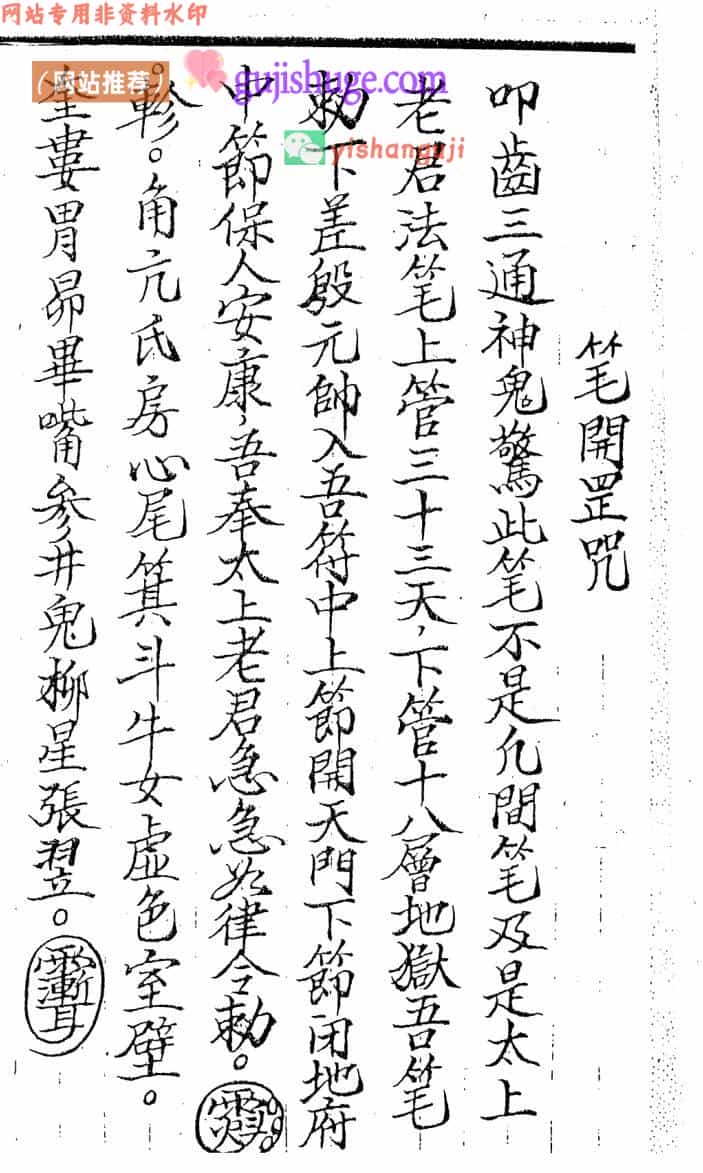 网站专用非资料水印
(网站推荐)
gujishuge.com
yishanguji
笔開罡咒
叩齒三通神鬼驚此笔不是凢間笔及是太上
老君法笔上管三十三天,下管十八層地獄吾笔
勅下差殷元帥入吾符中上節開天門下節闭地府
中節保人安康,吾奉太上老君急急如律令勅。
軫。角亢氐房心尾箕斗牛女虛色室壁。
奎婁胃昴畢嘴参井鬼柳星張翌。